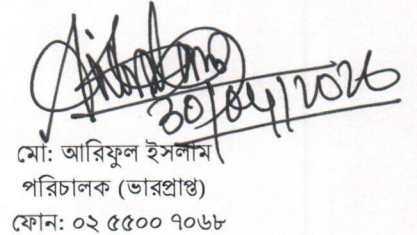 ৩০/০৪/২০২৬
মো: আরিফুল ইসলাম
পরিচালক (ভারপ্রাপ্ত)
ফোন: ০২ ৫৫০০ ৭০৬৮